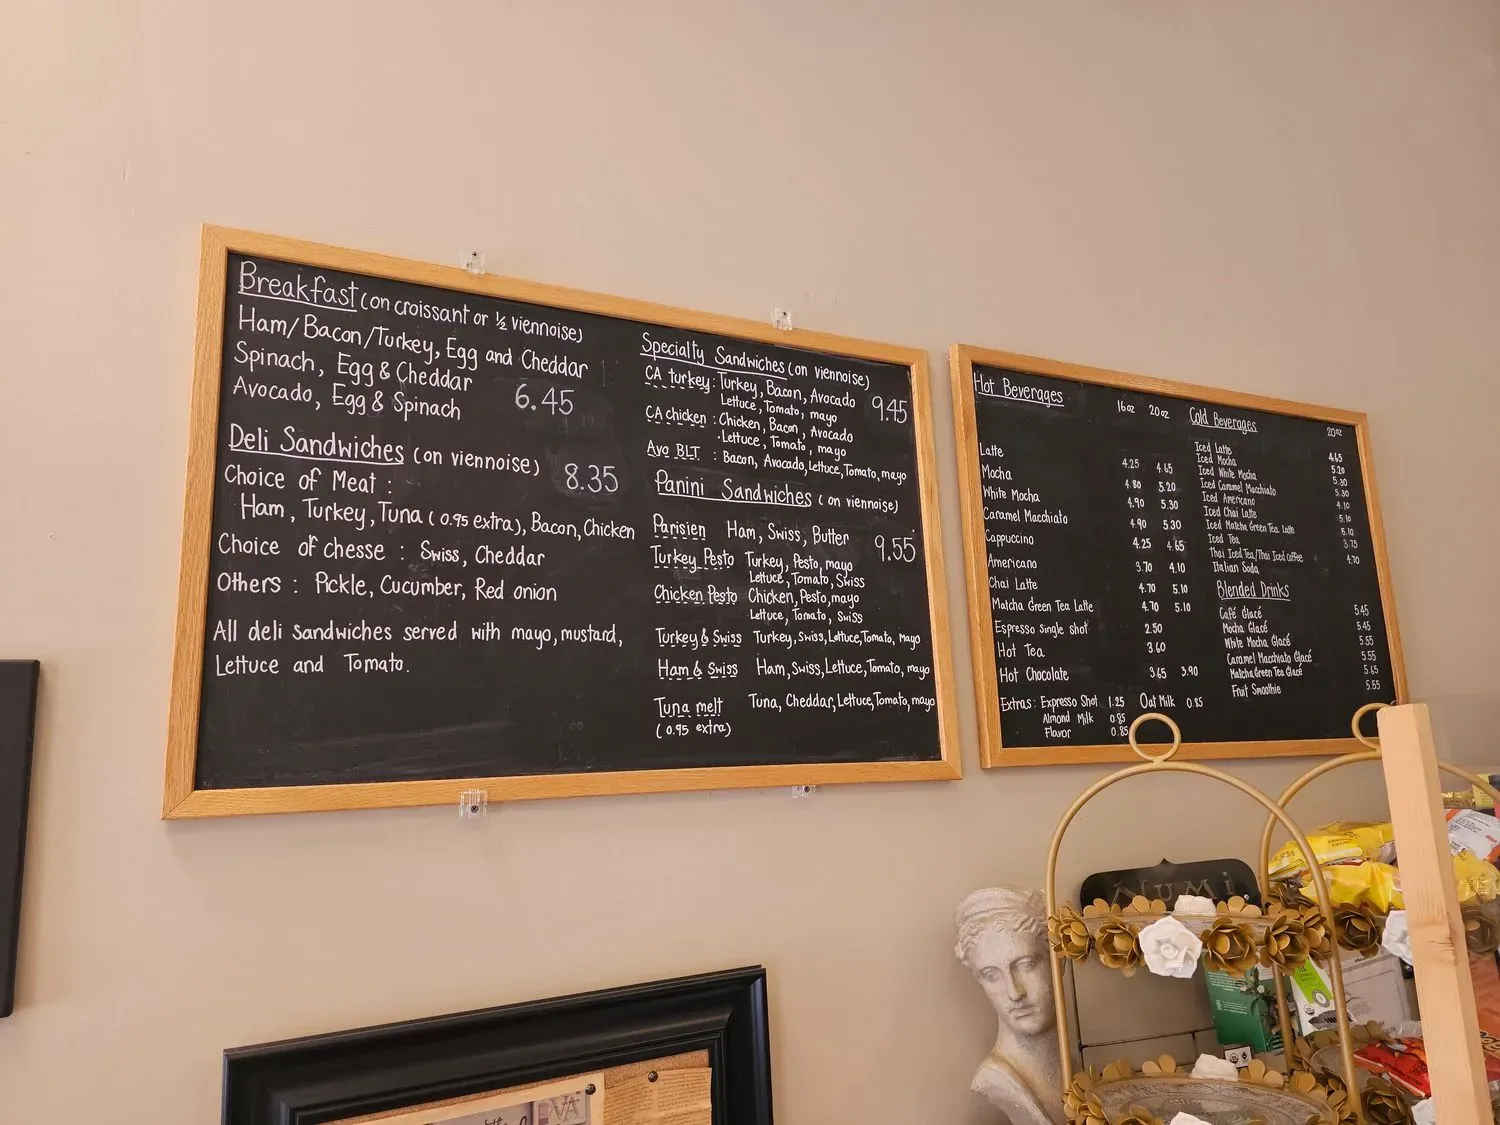 Breakfast (on croissant or ½ viennoise)
Ham/Bacon/Turkey, Egg and Cheddar
Spinach, Egg & Cheddar
Avocado, Egg & Spinach
6.45
Deli Sandwiches (on viennoise)
8.35
Choice of Meat :
Ham, Turkey, Tuna (0.95 extra), Bacon, Chicken
Choice of chesse : Swiss, Cheddar
Others : Pickle, Cucumber, Red onion
All deli sandwiches served with mayo, mustard,
Lettuce and Tomato.
Specialty Sandwiches (on viennoise)
CA turkey : Turkey, Bacon, Avocado
Lettuce, Tomato, mayo
9.45
CA chicken : Chicken, Bacon, Avocado
Lettuce, Tomato, mayo
Avo BLT : Bacon, Avocado, Lettuce, Tomato, mayo
Panini Sandwiches (on viennoise)
Parisien Ham, Swiss, Butter
9.55
Turkey Pesto Turkey, Pesto, mayo
Lettuce, Tomato, Swiss
Chicken Pesto Chicken, Pesto, mayo
Lettuce, Tomato, Swiss
Turkey & Swiss Turkey, Swiss, Lettuce, Tomato, mayo
Ham & Swiss Ham, Swiss, Lettuce, Tomato, mayo
Tuna melt Tuna, Cheddar, Lettuce, Tomato, mayo
(0.95 extra)
Hot Beverages
16oz 20oz
Latte 4.25 4.65
Mocha 4.80 5.20
White Mocha 4.90 5.30
Caramel Macchiato 4.90 5.30
Cappuccino 4.25 4.65
Americano 3.70 4.10
Chai Latte 4.70 5.10
Matcha Green Tea Latte 4.70 5.10
Espresso single shot 2.50
Hot Tea 3.60
Hot Chocolate 3.65 3.90
Extras : Expresso Shot 1.25 Oat Milk 0.85
Almond Milk 0.85
Flavor 0.85
Cold Beverages
20oz
Iced Latte 4.65
Iced Mocha 5.20
Iced White Mocha 5.30
Iced Caramel Macchiato 5.30
Iced Americano 4.10
Iced Chai Latte 5.10
Iced Matcha Green Tea Latte 5.10
Iced Tea 3.75
Thai Iced Tea/Thai Iced coffee 4.70
Italian Soda
Blended Drinks
Café Glacé 5.45
Mocha Glacé 5.45
White Mocha Glacé 5.55
Caramel Macchiato Glacé 5.55
Matcha Green Tea Glacé 5.65
Fruit Smoothie 5.55
NUMi